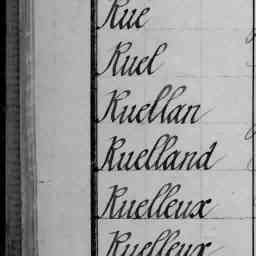 Rue
Ruel
Ruellan
Ruelland
Ruelleux
Ruelleux